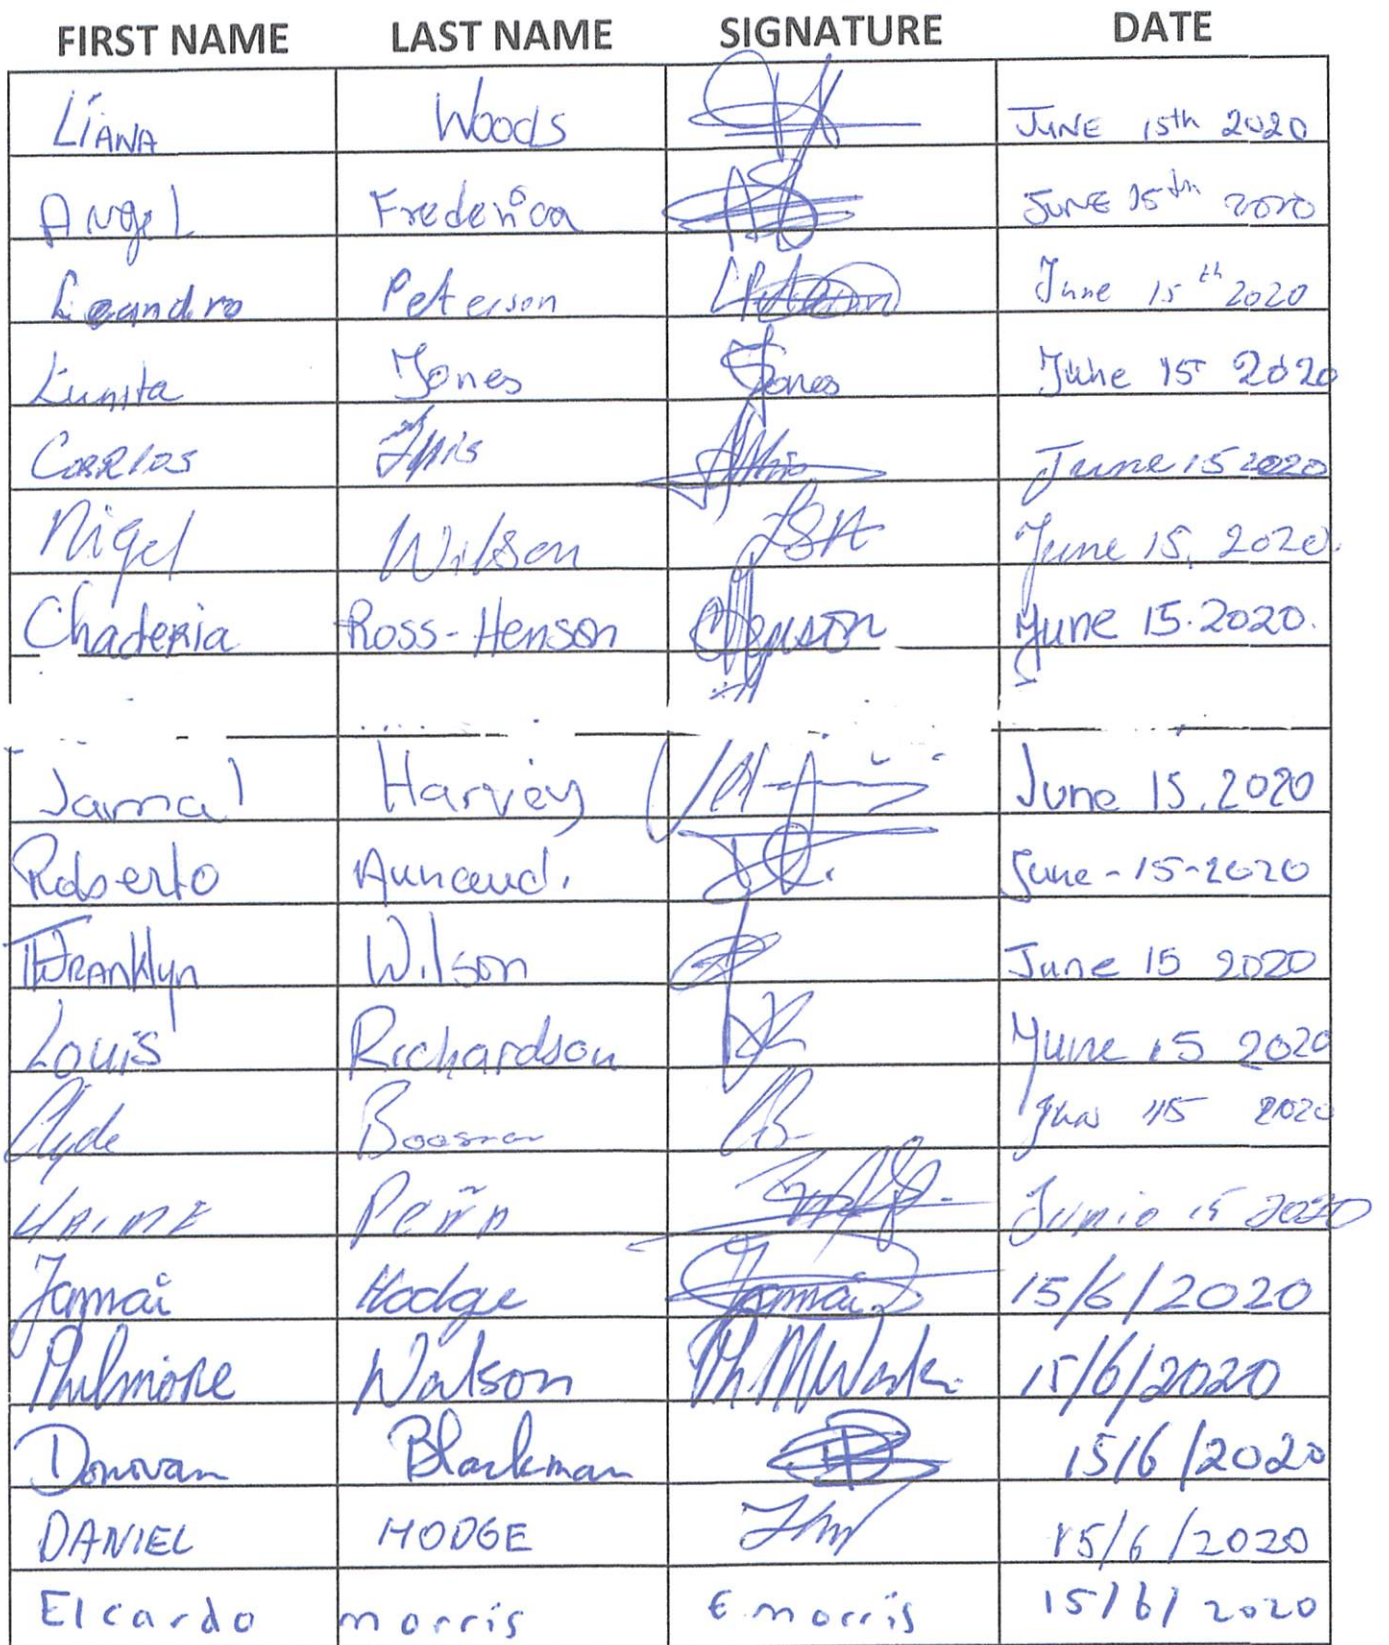 FIRST NAME LAST NAME SIGNATURE DATE
LIANA Woods JUNE 15th 2020
Angel Frederica JUNE 15th 2020
Leandro Peterson LPeterson June 15th 2020
Lunita Jones Jones June 15 2020
CARRLOS June 15 2020
Nigel Wilson June 15, 2020.
Chaderia Ross-Henson CHenson June 15.2020.
Jamal Harvey June 15, 2020
Roberto June-15-2020
FRANKlyn Wilson June 15 2020
Louis Richardson June 15 2020
Clyde Jun 15 2020
YAIME Peña Junio 15 2020
Jammai Hodge Jammai 15/6/2020
Philmore Watson 15/6/2020
Donovan Blackman 15/6/2020
DANIEL HODGE 15/6/2020
Elcardo morris E morris 15/6/2020